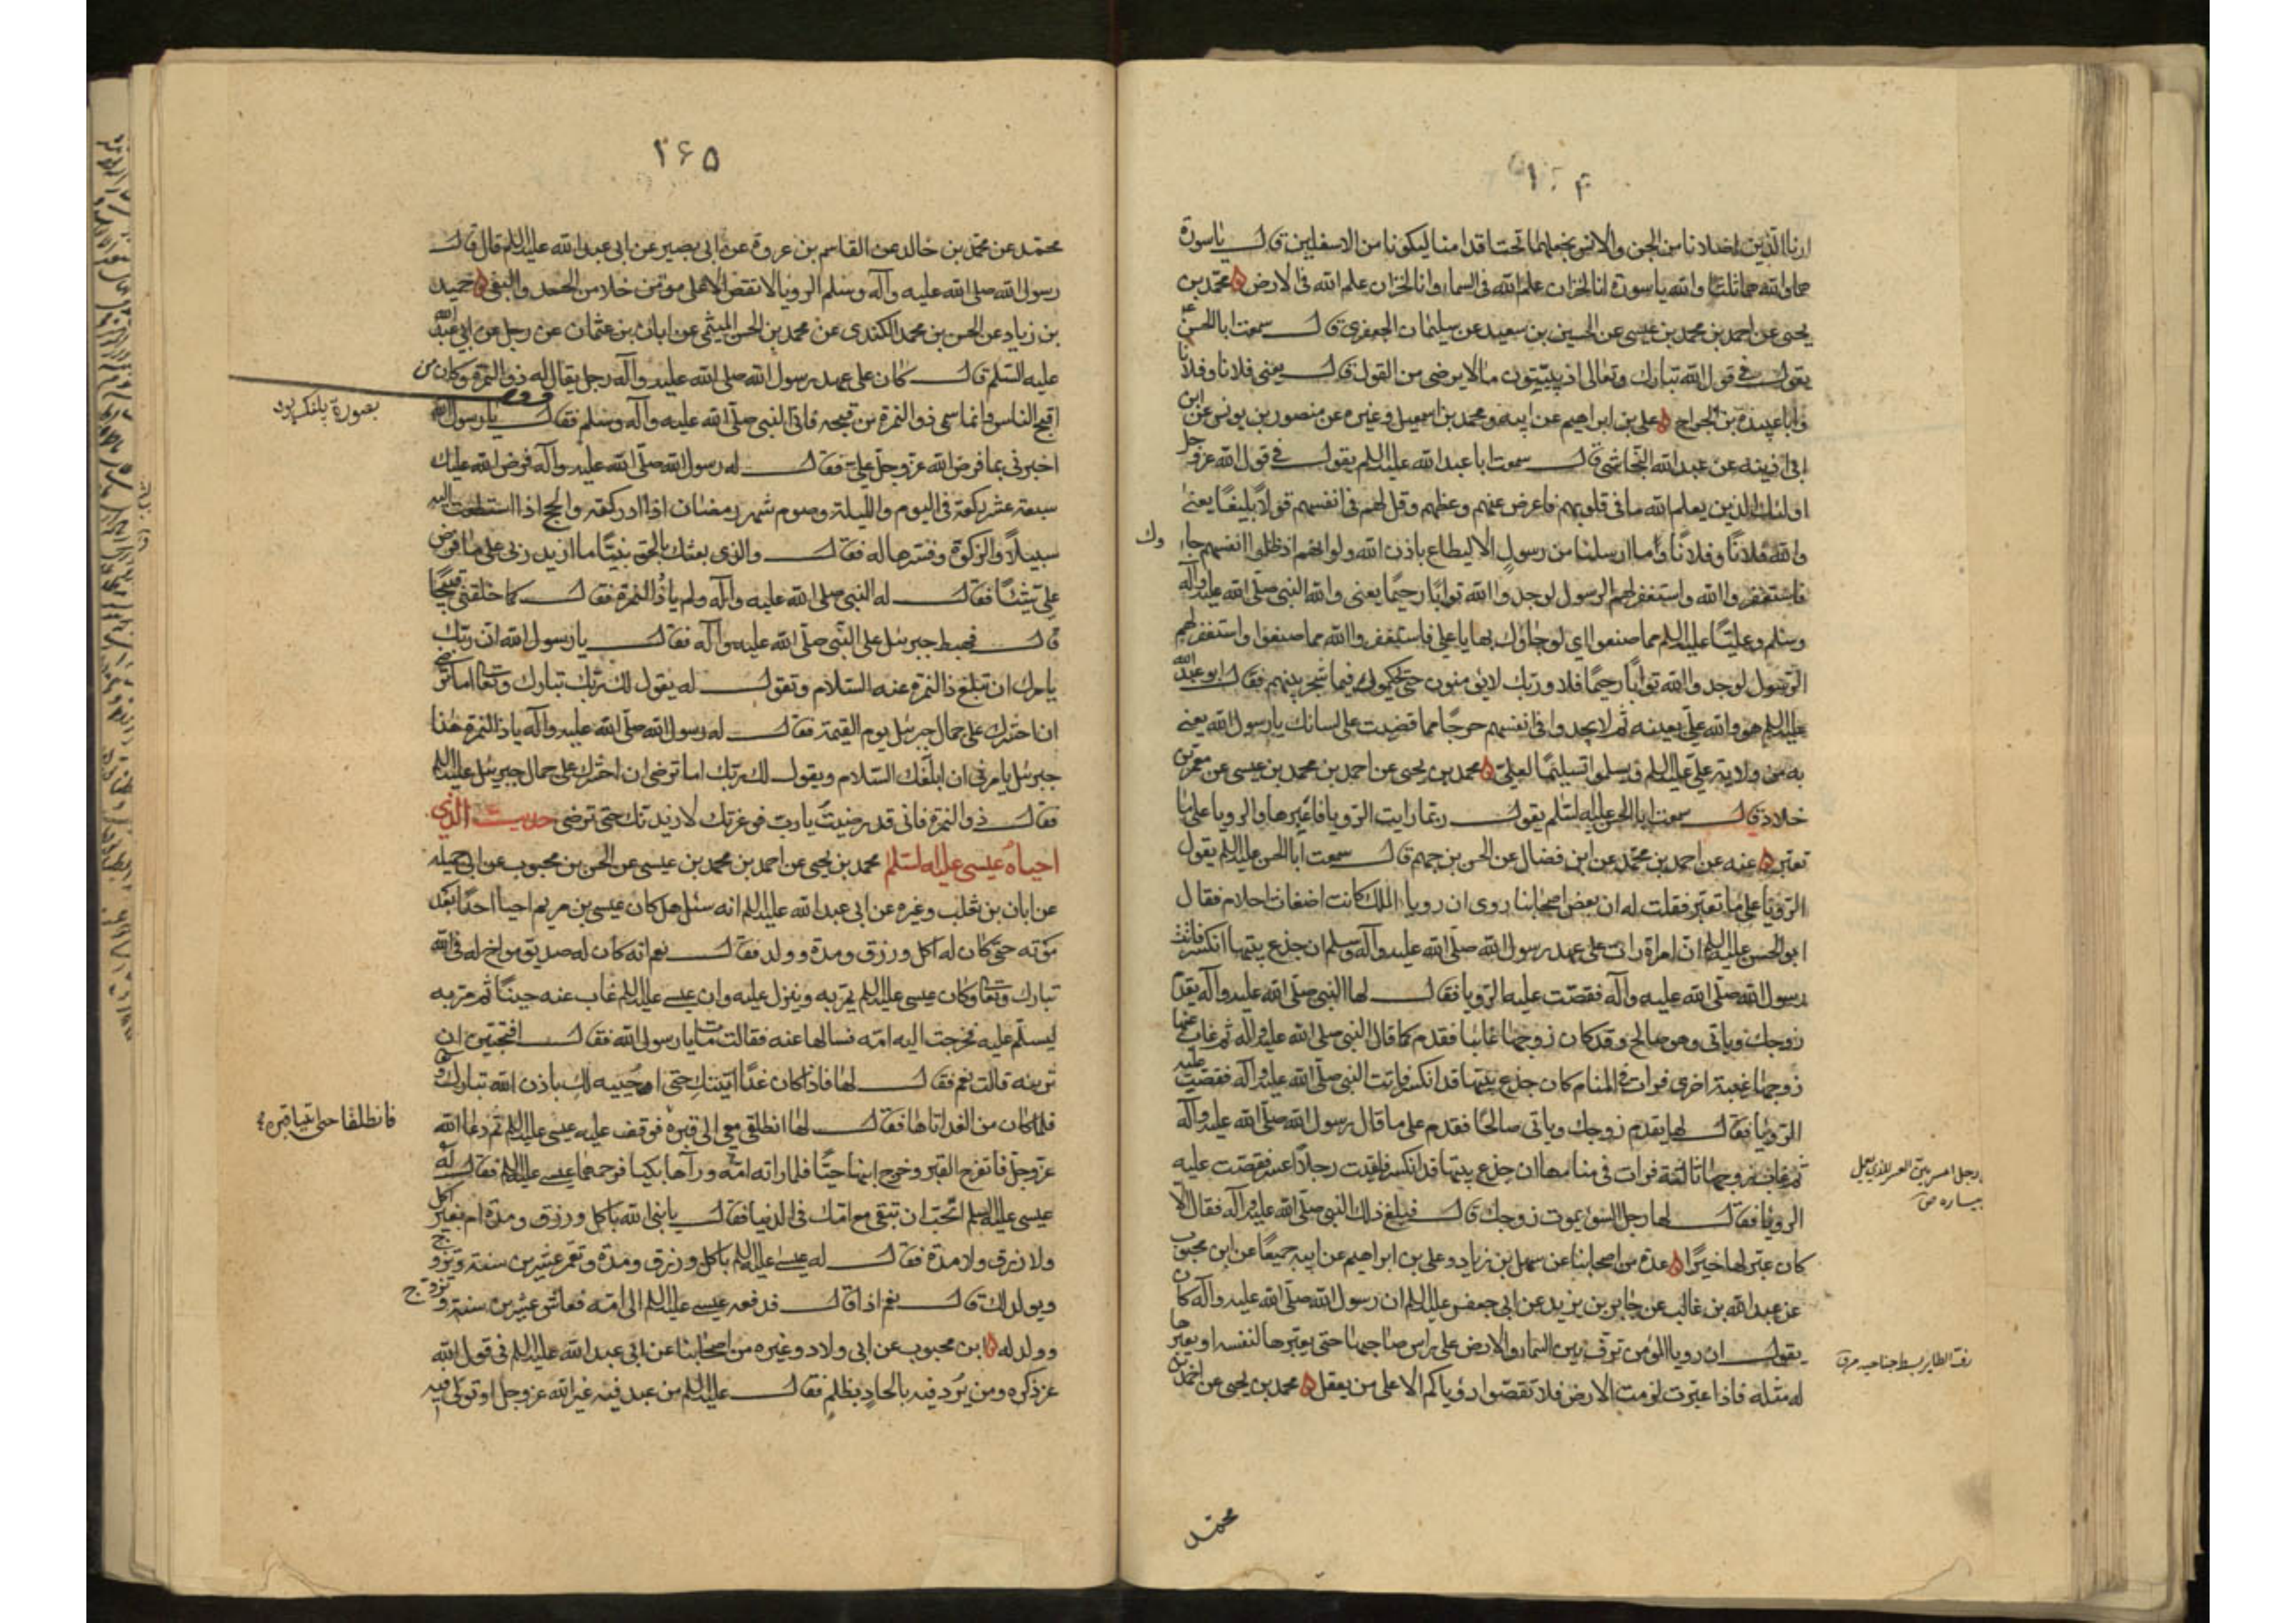 ارنا الذين اضلانا من الجن والانس نجعلهما تحت اقدامنا ليكونا من الاسفلين قال يا سورة
هما والله هما ثلثا والله يا سورة انا لخزان علم الله فى السماء وانا لخزان علم الله فى الارض محمد بن
يحيى عن احمد بن محمد بن عيسى عن الحسين بن سعيد عن سليمان الجعفرى قال سمعت ابا الحسن ع
يقول فى قول الله تبارك وتعالى اذ يبيتون ما لا يرضى من القول قال يعنى فلانا وفلانا
وابا عبيدة بن الجراح على بن ابراهيم عن ابيه ومحمد بن اسمعيل وغيره عن منصور بن يونس عن ابن
اذينه عن عبد الله النجاشى قال سمعت ابا عبد الله عليه السلم يقول فى قول الله عز وجل
اولئك الذين يعلم الله ما فى قلوبهم فاعرض عنهم وعظهم وقل لهم فى انفسهم قولا بليغا يعنى
والله فلانا وفلانا وما ارسلنا من رسول الا ليطاع باذن الله ولو انهم اذ ظلموا انفسهم جاؤك
فاستغفروا الله واستغفر لهم الرسول لوجدوا الله توابا رحيما يعنى والله النبى صلى الله عليه وآله
وسلم وعليا عليه السلم مما صنعوا اى لو جاؤك بها يا على فاستغفروا الله مما صنعوا واستغفر لهم
الرسول لوجدوا الله توابا رحيما فلا وربك لا يؤمنون حتى يحكموك فيما شجر بينهم فقال ابو عبد الله
عليه السلم هو والله على بعينه ثم لا يجدوا فى انفسهم حرجا مما قضيت على لسانك يا رسول الله يعنى
به من ولاية على عليه السلم ويسلموا تسليما لعلى محمد بن يحيى عن احمد بن محمد بن عيسى عن معمر بن
خلاد قال سمعت ابا الحسن عليه السلم يقول ربما رايت الرؤيا فاعبرها والرؤيا على ما
تعبر عنه عن احمد بن محمد عن ابن فضال عن الحسن بن جهم قال سمعت ابا الحسن عليه السلم يقول
الرؤيا على ما تعبر فقلت له ان بعض اصحابنا روى ان رويا الملك كانت اضغاث احلام فقال
ابو الحسن عليه السلم ان امراة رات على عهد رسول الله صلى الله عليه وآله وسلم ان جذع بيتها انكسر فاتت
رسول الله صلى الله عليه وآله فقصت عليه الرؤيا فقال لها النبى صلى الله عليه وآله يقدم
زوجك وياتى وهو صالح وقد كان زوجها غائبا فقدم كما قال النبى صلى الله عليه وآله ثم غاب عنها
زوجها غيبة اخرى فرات فى المنام كان جذع بيتها قد انكسر فاتت النبى صلى الله عليه وآله فقصت عليه
الرؤيا فقال لها يقدم زوجك وياتى صالحا فقدم على ما قال رسول الله صلى الله عليه وآله
ثم غاب زوجها ثالثة فرات فى منامها ان جذع بيتها قد انكسر فلقيت رجلا اعسر فقصت عليه
الرؤيا فقال لها رجل السوء يموت زوجك قال فبلغ ذلك النبى صلى الله عليه وآله فقال الا
كان عبر لها خيرا عدة من اصحابنا عن سهل بن زياد وعلى بن ابراهيم عن ابيه جميعا عن ابن محبوب
عن عبد الله بن غالب عن جابر بن يزيد عن ابى جعفر عليه السلم ان رسول الله صلى الله عليه وآله كان
يقول ان رويا المؤمن ترف بين السماء والارض على راس صاحبها حتى يعبرها لنفسه او يعبرها
له مثله فاذا عبرت لزمت الارض فلا تقصوا رؤياكم الا على من يعقل محمد بن يحيى عن احمد بن
محمد
رف الطاير بسط جناحيه
۲۶۵
محمد عن محمد بن خالد عن القاسم بن عروة عن ابى بصير عن ابى عبد الله عليه السلم قال قال
رسول الله صلى الله عليه وآله وسلم الرويا لا تقص الا على مؤمن خلا من الحسد والبغى حميد
بن زياد عن الحسن بن محمد الكندى عن محمد بن الحسن الميثمى عن ابان بن عثمان عن رجل عن ابى عبد الله
عليه السلم قال كان على عهد رسول الله صلى الله عليه وآله رجل يقال له ذو النمرة وكان من
اقبح الناس وانما سمى ذو النمرة من قبحه فاتى النبى صلى الله عليه وآله وسلم فقال يا رسول الله
اخبرنى بما فرض الله عز وجل على فقال له رسول الله صلى الله عليه وآله فرض الله عليك
سبعة عشر ركعة فى اليوم والليلة وصوم شهر رمضان اذا ادركته والحج اذا استطعت اليه
سبيلا والزكوة وفسرها له فقال والذى بعثك بالحق نبيا ما ازيد ربى على ما فرض
على شيئا فقال له النبى صلى الله عليه وآله ولم يا ذا النمرة فقال كما خلقنى قبيحا
قال فهبط جبرئل على النبى صلى الله عليه وآله فقال يا رسول الله ان ربك
يامرك ان تبلغ ذا النمرة عنه السلام وتقول له يقول لك ربك تبارك وتعالى اما ترضى
ان احشرك على جمال جبرئل يوم القيمة فقال له رسول الله صلى الله عليه وآله يا ذا النمرة هذا
جبرئل يامرنى ان ابلغك السلام ويقول لك ربك اما ترضى ان احشرك على جمال جبرئل عليه السلم
فقال ذو النمرة فانى قد رضيت يا رب فوعزتك لازيدنك حتى ترضى حديث الذى
احياه عيسى عليه السلم محمد بن يحيى عن احمد بن محمد بن عيسى عن الحسن بن محبوب عن ابى جميله
عن ابان بن تغلب وغيره عن ابى عبد الله عليه السلم انه سئل هل كان عيسى بن مريم احيا احدا بعد
موته حتى كان له اكل ورزق ومدة وولد فقال نعم انه كان له صديق مواخ له فى الله
تبارك وتعالى وكان عيسى عليه السلم يمر به وينزل عليه وان عيسى عليه السلم غاب عنه حينا ثم مر به
ليسلم عليه فخرجت اليه امه فسالها عنه فقالت مات يا رسول الله فقال افتحبين ان
ترينه قالت نعم فقال لها فاذا كان غدا اتيتك حتى احييه لك باذن الله تبارك وتعالى
فلما كان من الغد اتاها فقال لها انطلقى معى الى قبره فوقف عليه عيسى عليه السلم ثم دعا الله
فانطلقا حتى اتيا قبره
عز وجل فانفرج القبر وخرج ابنها حيا فلما راته امه ورآها بكيا فرحمهما عيسى عليه السلم فقال له
عيسى عليه السلم اتحب ان تبقى مع امك فى الدنيا فقال يا نبى الله باكل ورزق ومدة ام بغير اكل
ولا رزق ولا مدة فقال له عيسى عليه السلم باكل ورزق ومدة وتعمر عشرين سنة وتزوج
ويولد لك قال نعم اذا قال فدفعه عيسى عليه السلم الى امه فعاش عشرين سنة وتزوج
وولد له ابن محبوب عن ابى ولاد وغيره من اصحابنا عن ابى عبد الله عليه السلم فى قول الله
عز ذكره ومن يرد فيه بالحاد بظلم فقال عليه السلم من عبد فيه غير الله عز وجل او تولى فيه